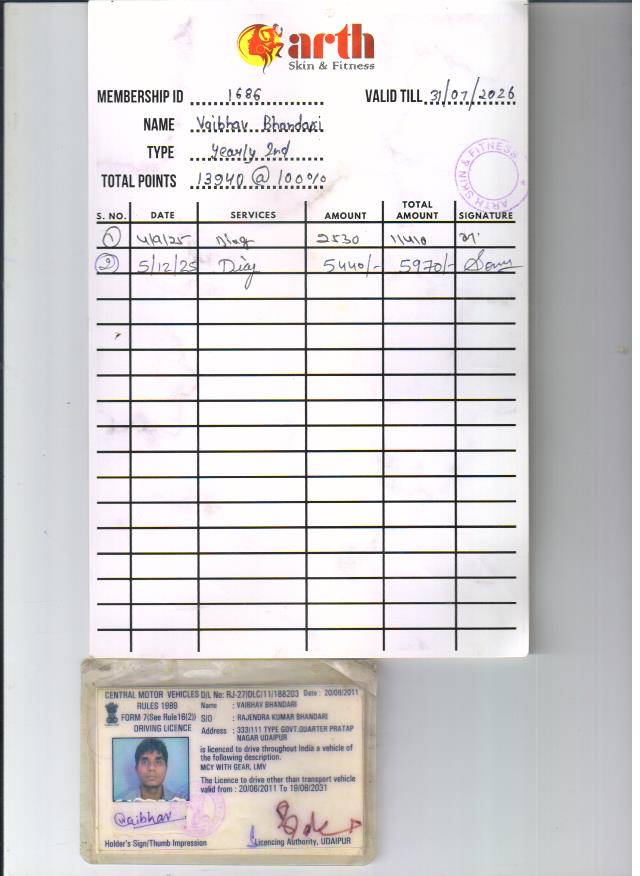 arth
Skin & Fitness
MEMBERSHIP ID 1686 VALID TILL 31/07/2026
NAME Vaibhav Bhandari
TYPE Yearly 2nd
TOTAL POINTS 13940 @ 100%
ARTH SKIN & FITNESS
S. NO. DATE SERVICES AMOUNT TOTAL AMOUNT SIGNATURE
1 4/9/25 2530 11410
2 5/12/25 5440/- 5970/-
CENTRAL MOTOR VEHICLES D/L No: RJ-27/DLC/11/188203 Date : 20/06/2011
RULES 1989 Name : VAIBHAV BHANDARI
FORM 7(See Rule16(2)) S/O : RAJENDRA KUMAR BHANDARI
DRIVING LICENCE Address : 333/111 TYPE GOVT.QUARTER PRATAP
NAGAR UDAIPUR
is licenced to drive throughout India a vehicle of
the following description.
MCY WITH GEAR, LMV
The Licence to drive other than transport vehicle
valid from : 20/06/2011 To 19/06/2031
Vaibhav
Holder's Sign/Thumb Impression Licencing Authority, UDAIPUR